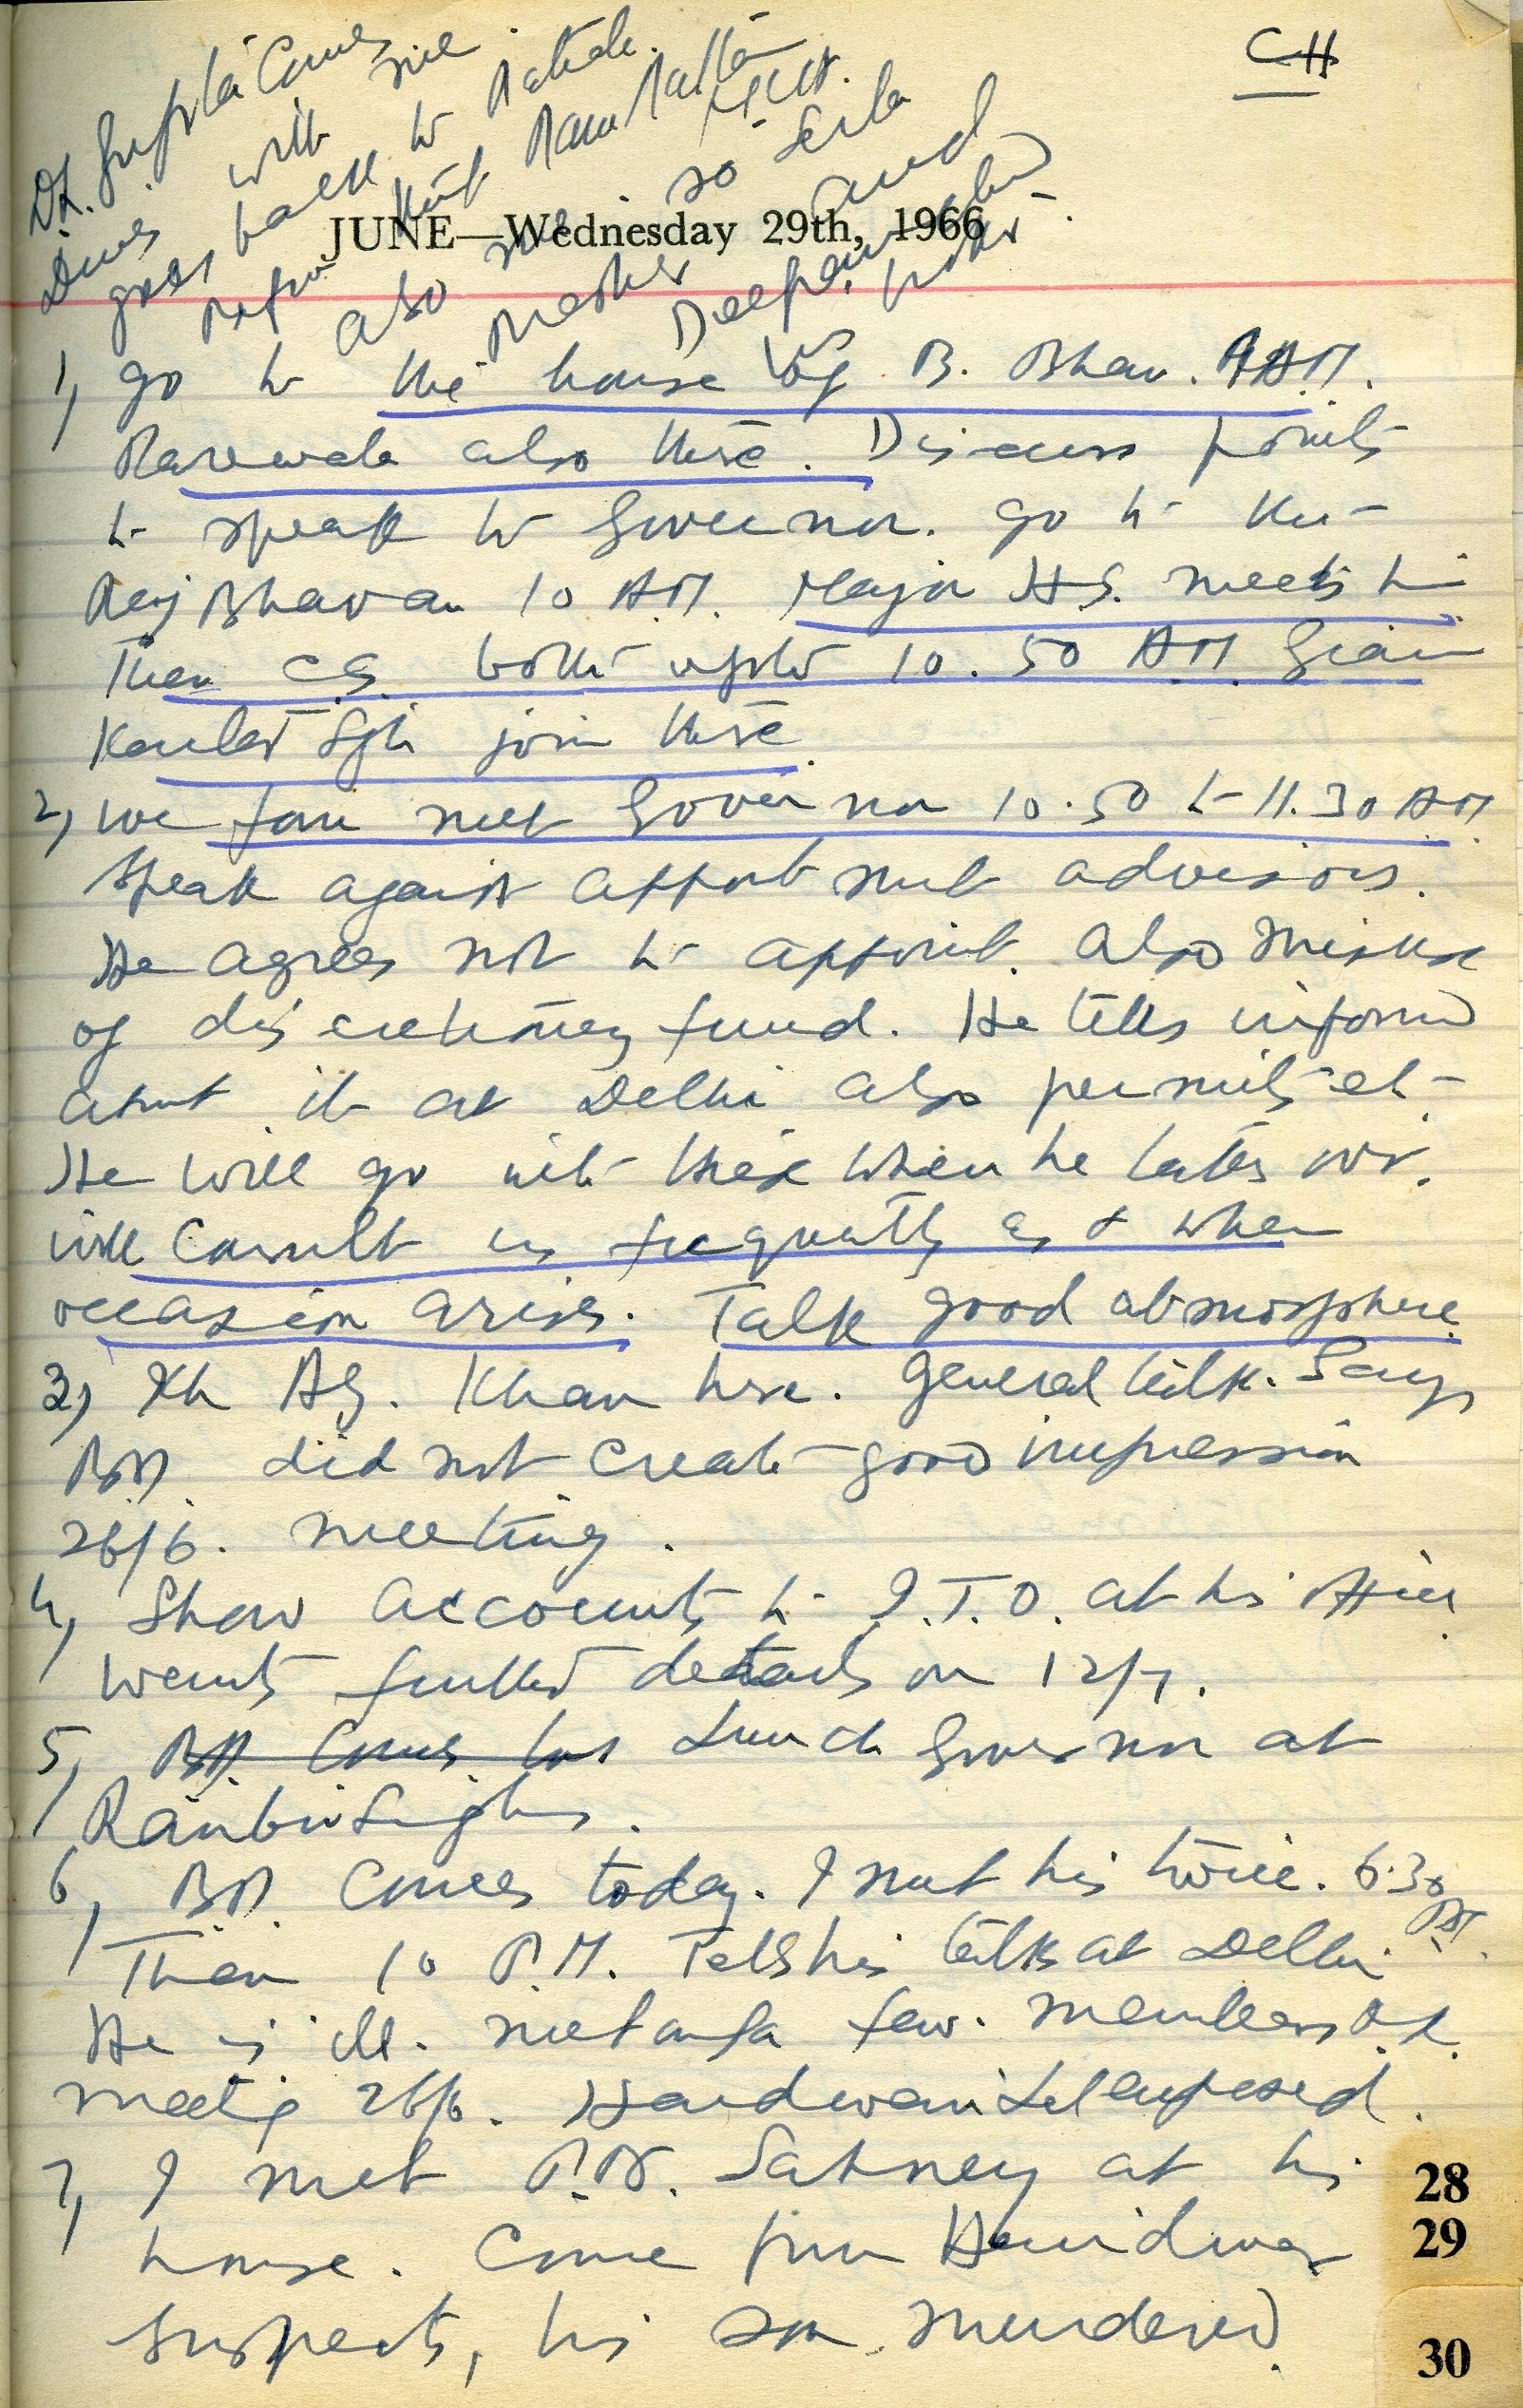 CH
Dr. Gupta Comes
Dines with me.
goes back to Patiala.
JUNE—Wednesday 29th, 1966
also so
and
1) go to the house of B. Bhan. 9 AM.
Rarewala also there. Discuss points
to speak to Governor. go to the
Raj Bhavan 10 AM. Major H.S. meets him
Then C.S. both upto 10.50 AM Giani
Kartar Sgh join there
2) we four meet Governor 10.50 to 11.30 AM
Speak against apptmt advisors.
He agrees not to appoint. also misuse
of discretionary fund. He tells informed
about it at Delhi also permits etc
He will go into these when he takes over.
will consult us frequently as & when
occasion arises. Talk good atmosphere
3) Kh AG. Khan here. general talk. Says
BD did not create good impression
26/6. meeting.
4) Show accounts to I.T.O. at his office
wants further details on 12/7.
5) BD. Comes Lunch Governor at
Ranbir Singhs.
6) BD. Comes today. I met him twice. 6.30 PM.
Then 10 P.M. Tells his talks at Delhi
He is ill. met only a few. members
meeting 26/6. Hardwari Lal exposed.
7) I met P.N. Sahney at his
house. Come from Haridwar
suspects, his son murdered.
28
29
30